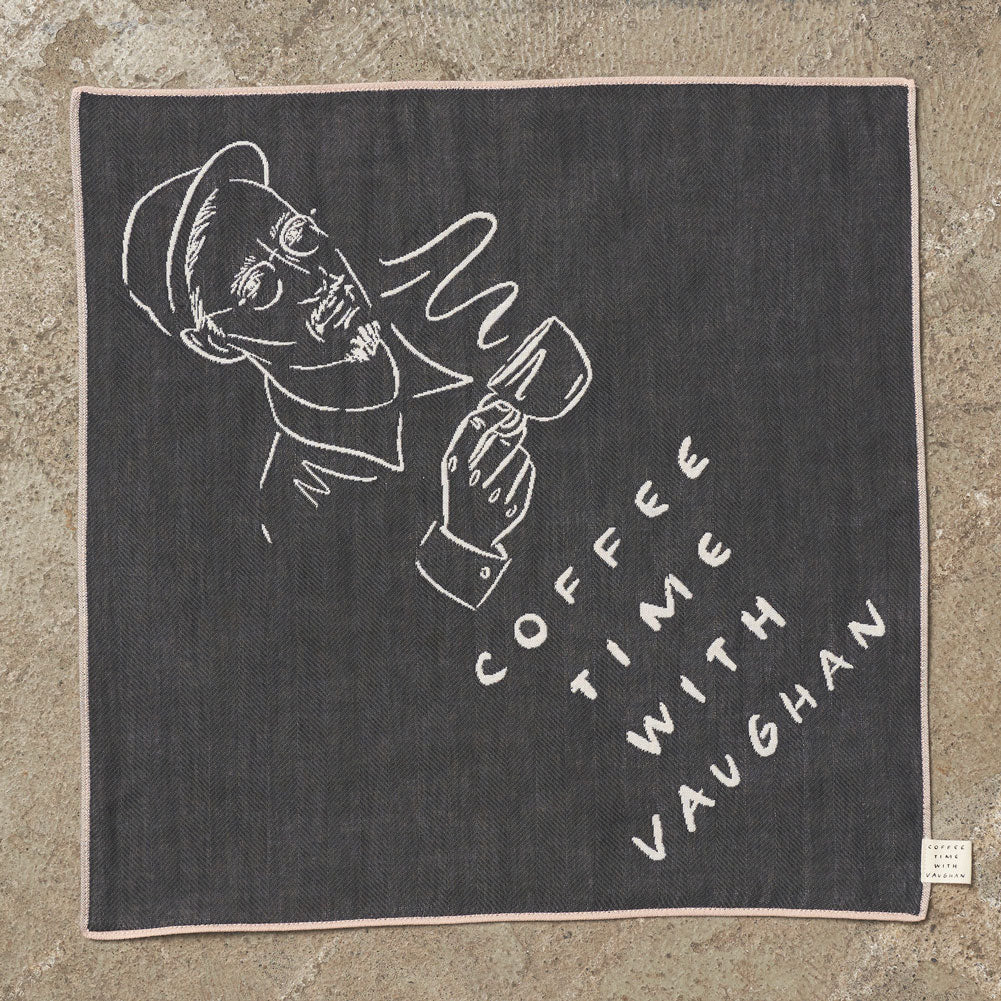 COFFEE
TIME
WITH
VAUGHAN
COFFEE
TIME
WITH
VAUGHAN